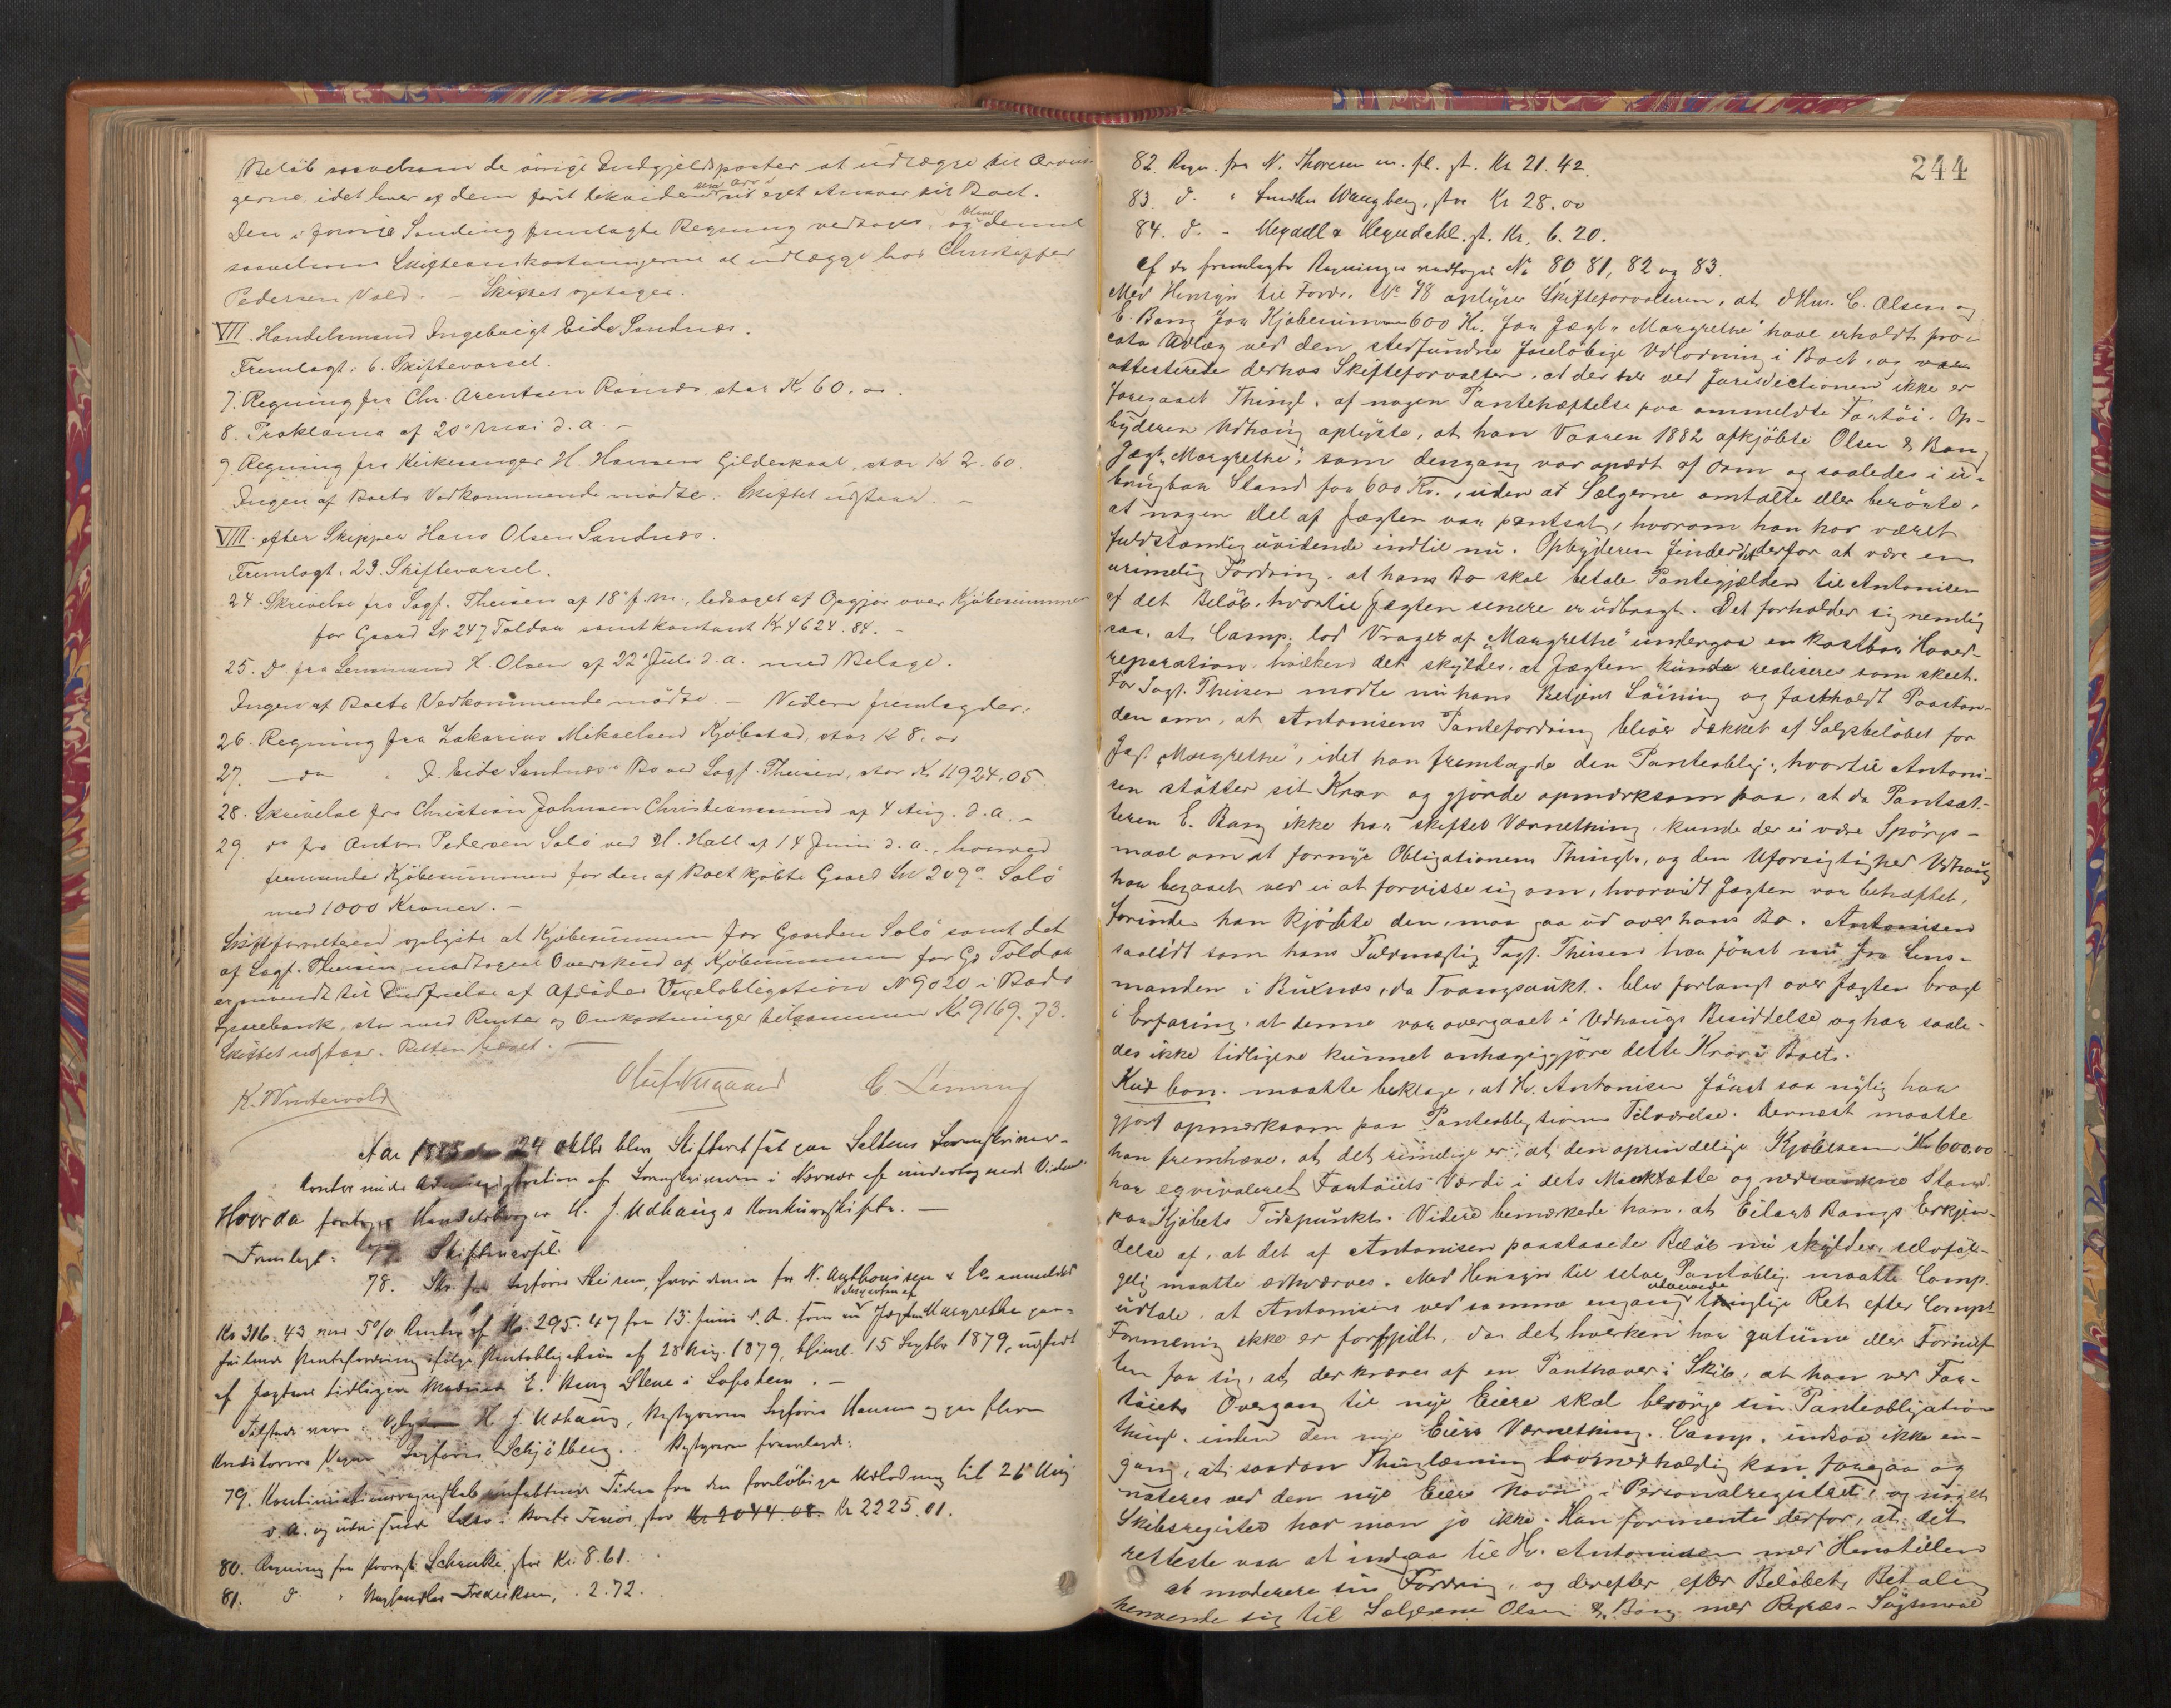 Beløb saavelsom de øvrige Indgjeldsposter at udlægge til Arvin-
gerne, idet hver af dem forit eget Ansvar til Boet.
Den i forrige Samling fremlagte Regning vedtages, og bliver denne
saavelsom Skifteomkostningerne at udlægge hos Christopher
Pedersen Vold. – Skiftet optages.
VII. Handelsmand Ingebrigt Eide Sandnæs.
Fremlagt: 6. Skiftevarsel.
7. Regning fra Chr. Arentsen Risnæs, stor Kr 60. 00.
8. Proklama af 20de Mai d. a. –
9. Regning fra Kirkesanger H. Hansen Gildeskaal, stor Kr 2. 60.
Ingen af Boets Vedkommende mødte. Skiftet udstaar. –
VIII. efter Skipper Hans Olsen Sandnæs.
Fremlagt: 23. Skiftevarsel.
24. Skrivelse fra Sagf. Theisen af 18de f. m., ledsaget af Opgjør over Kjøbesummen
for Gaard Lr 247 Toldaa samt kontant Kr 4624. 84. –
25. do fra Lensmand H. Olsen af 22de Juli d. a. med Bilage.
Ingen af Boets Vedkommende mødte. – Videre fremlagdes:
26. Regning fra Zakarias Mikaelsen Kjøbstad, stor Kr 8. 00
27. – do " I. Eide Sandnæs' Bo ved Sagf. Theisen, stor Kr. 11924. 05.
28. Skrivelse fra Christian Johnsen Christianssund af 4 Aug. d. a. –
29. do fra Anton Pedersen Solø ved H. Hall af 14 Juni d. a., hvorved
fremsendes Kjøbesummen for den af Boet kjøbte Gaard Lr 209a Solø
med 1000 Kroner. –
Skifteforvalteren oplyste at Kjøbesummen for Gaarden Solø samt det
af Sagf. Theisen modtagne Overskud af Kjøbesummen for Gd Toldaa
er anvendt til Indfrielse af Afdødes Vexelobligation N 9020 i Bodø
Sparebank, stor med Renter og Omkostninger tilsammen Kr 9169. 73.
Skiftet udstaar. Retten hævet. –
K. Wintervold Oluf C. Løining
Aar 1883 den 24 Oktbr blev Skifteret sat paa Saltens Sorenskriver-
kontor under Administration af Sorenskriveren i af undertegnede Vidner.
Hvorda foretoges Handelsborger H. J. Udhaugs Konkursskifte. –
Fremlagt: 77. Skiftevarsel.
78. Skr. fra Sagfører Theisen, hvori denne for N. Anthonisen & Co anmelder
Kr 316. 43 med 5% Renter af Kr. 295. 47 fra 13. Juni d. A. som en i Jægten Margrethe paa-
hvilende Pantefordring ifølge Pantobligation af 28 Aug. 1879, thingl. 15 Septbr 1879, udstedt
af Jægtens tidligere E. Bang Stene i Lofoten. –
Tilstede vare: H. J. Udhaug, Bestyreren Sagfører Hansen og paa flere
Kreditorers Vegne Sagfører Schjølberg. Bestyreren fremlagde:
79. omfattende Tiden fra den foreløbige Udlodning til 26 Aug
d. A. og Boets Favør, stor Kr 2044. 08. Kr 2225. 01.
80. Regning fra Schenke, stor Kr. 8. 61.
81. d. " Fredriksen, " 2. 72.
244
82. Regn. fra N. Thoresen m. fl. st. Kr 21. 42.
83. d. " Wangberg, stor Kr 28. 00
84. d. – st. Kr. 6. 20.
Af de fremlagte Regninger vedtoges No 80, 81, 82 og 83.
Med Hensyn til Fordr. No 78 oplyser Skifteforvalteren, at C. Olsen og
E. Bang for Kjøbesummen 600 Kr. for Jægt "Margrethe" have erholdt pro-
cato Udlæg ved den stedfundne foreløbige Udlodning i Boet, og
attesterede derhos Skifteforvalteren, at der ved Jurisdictionen ikke er
foregaaet Thingl. af nogen Pantehæftelse paa ommeldte Fartøi. Op-
byderen Udhaug oplyste, at han Vaaren 1882 afkjøbte Olsen & Bang
Jægt "Margrethe", som dengang var opædt af Orm og saaledes i u-
brugbar Stand for 600 Kr., uden at Sælgerne omtalte eller berørte,
at nogen Del af Jægten var pantsat, hvorom han har været
fuldstændig uvidende indtil nu. Opbyderen finder det derfor at være en
urimelig Fordring, at hans Bo skal betale Pantegjælden til Antonisen
af det Beløb, hvortil Jægten senere er udbragt. Det forholder sig nemlig
saa, at Comp. lod Vraget af "Margrethe" undergaa en kostbar Hoved-
reparation, hvilken det skyldes, at Jægten kunde realiseres som skeet.
For Sagf. Theisen mødte nu hans Betjent Løining og fastholdt Paastan-
den om, at Antonisens Pantefordring bliver dækket af Salgsbeløbet for
Jægt "Margrethe", idet han fremlagde den Panteoblig., hvortil Antoni-
sen støtter sit Krav og gjorde opmærksom paa, at da Pantsæt-
teren E. Bang ikke har skiftet Værnething, kunde der ei være Spørgs-
maal om at fornye Obligationens Thingl., og den Uforsigtighed Udhaug
har begaaet ved ei at forvisse sig om, hvorvidt Jægten var behæftet,
forinden han kjøbte den, maa gaa ud over hans Bo. Antonisen
saavidt som hans Fuldmægtig Sagf. Theisen har først nu fra Lens-
manden i Buxnæs, da Tvangsaukt. blev forlangt over Jægten bragt
i Erfaring, at denne var overgaaet i Udhaugs Besiddelse og har saale-
des ikke tidligere kunnet anhængiggjøre dette Krav i Boet.
Kur. bon. maatte beklage, at Hr. Antonisen først saa nylig har
gjort opmærksom paa Panteobligationens Tilværelse. Dernæst maatte
han fremhæve, at det rimelige er, at den oprindelige Kjøbesum Kr 600.00
har eqvivaleret Fartøiets Værdi i dets Markætte og nedsunkne Stand
paa Kjøbets Tidspunkt. Videre bemærkede han, at Eilert Bangs Erkjen-
delse af, at det af Antonisen paastaaede Beløb nu skyldes, selvføl-
gelig maatte erhverves. Med Hensyn til selve Pantoblig. maatte Comp.
udtale, at Antonisens ved samme engang thinglige Ret efter Comps
Formening ikke er forspildt, da det hverken har eller Fornuf-
ten for sig, at der kræves af en Panthaver i Skib, at han ved Far-
tøiets Overgang til nye Eiere skal besørge sin Panteobligation
thingl. inden den nye Eiers Værnething. Comp. indsaa ikke en-
gang, at saadan Thinglæsning lovmedholdig kan foregaa og
noteres ved den nye Eiers Navn i Personalregistret, og noget
Skibsregister har man jo ikke. Han formente derfor, at det
retteste var at indgaa til Hr. Antonisen med Henstillen
at moderere sin Fordring, og derefter efter Beløbets Betaling
henvende sig til Sælgerne Olsen & Bang med Regres-Søgsmaal